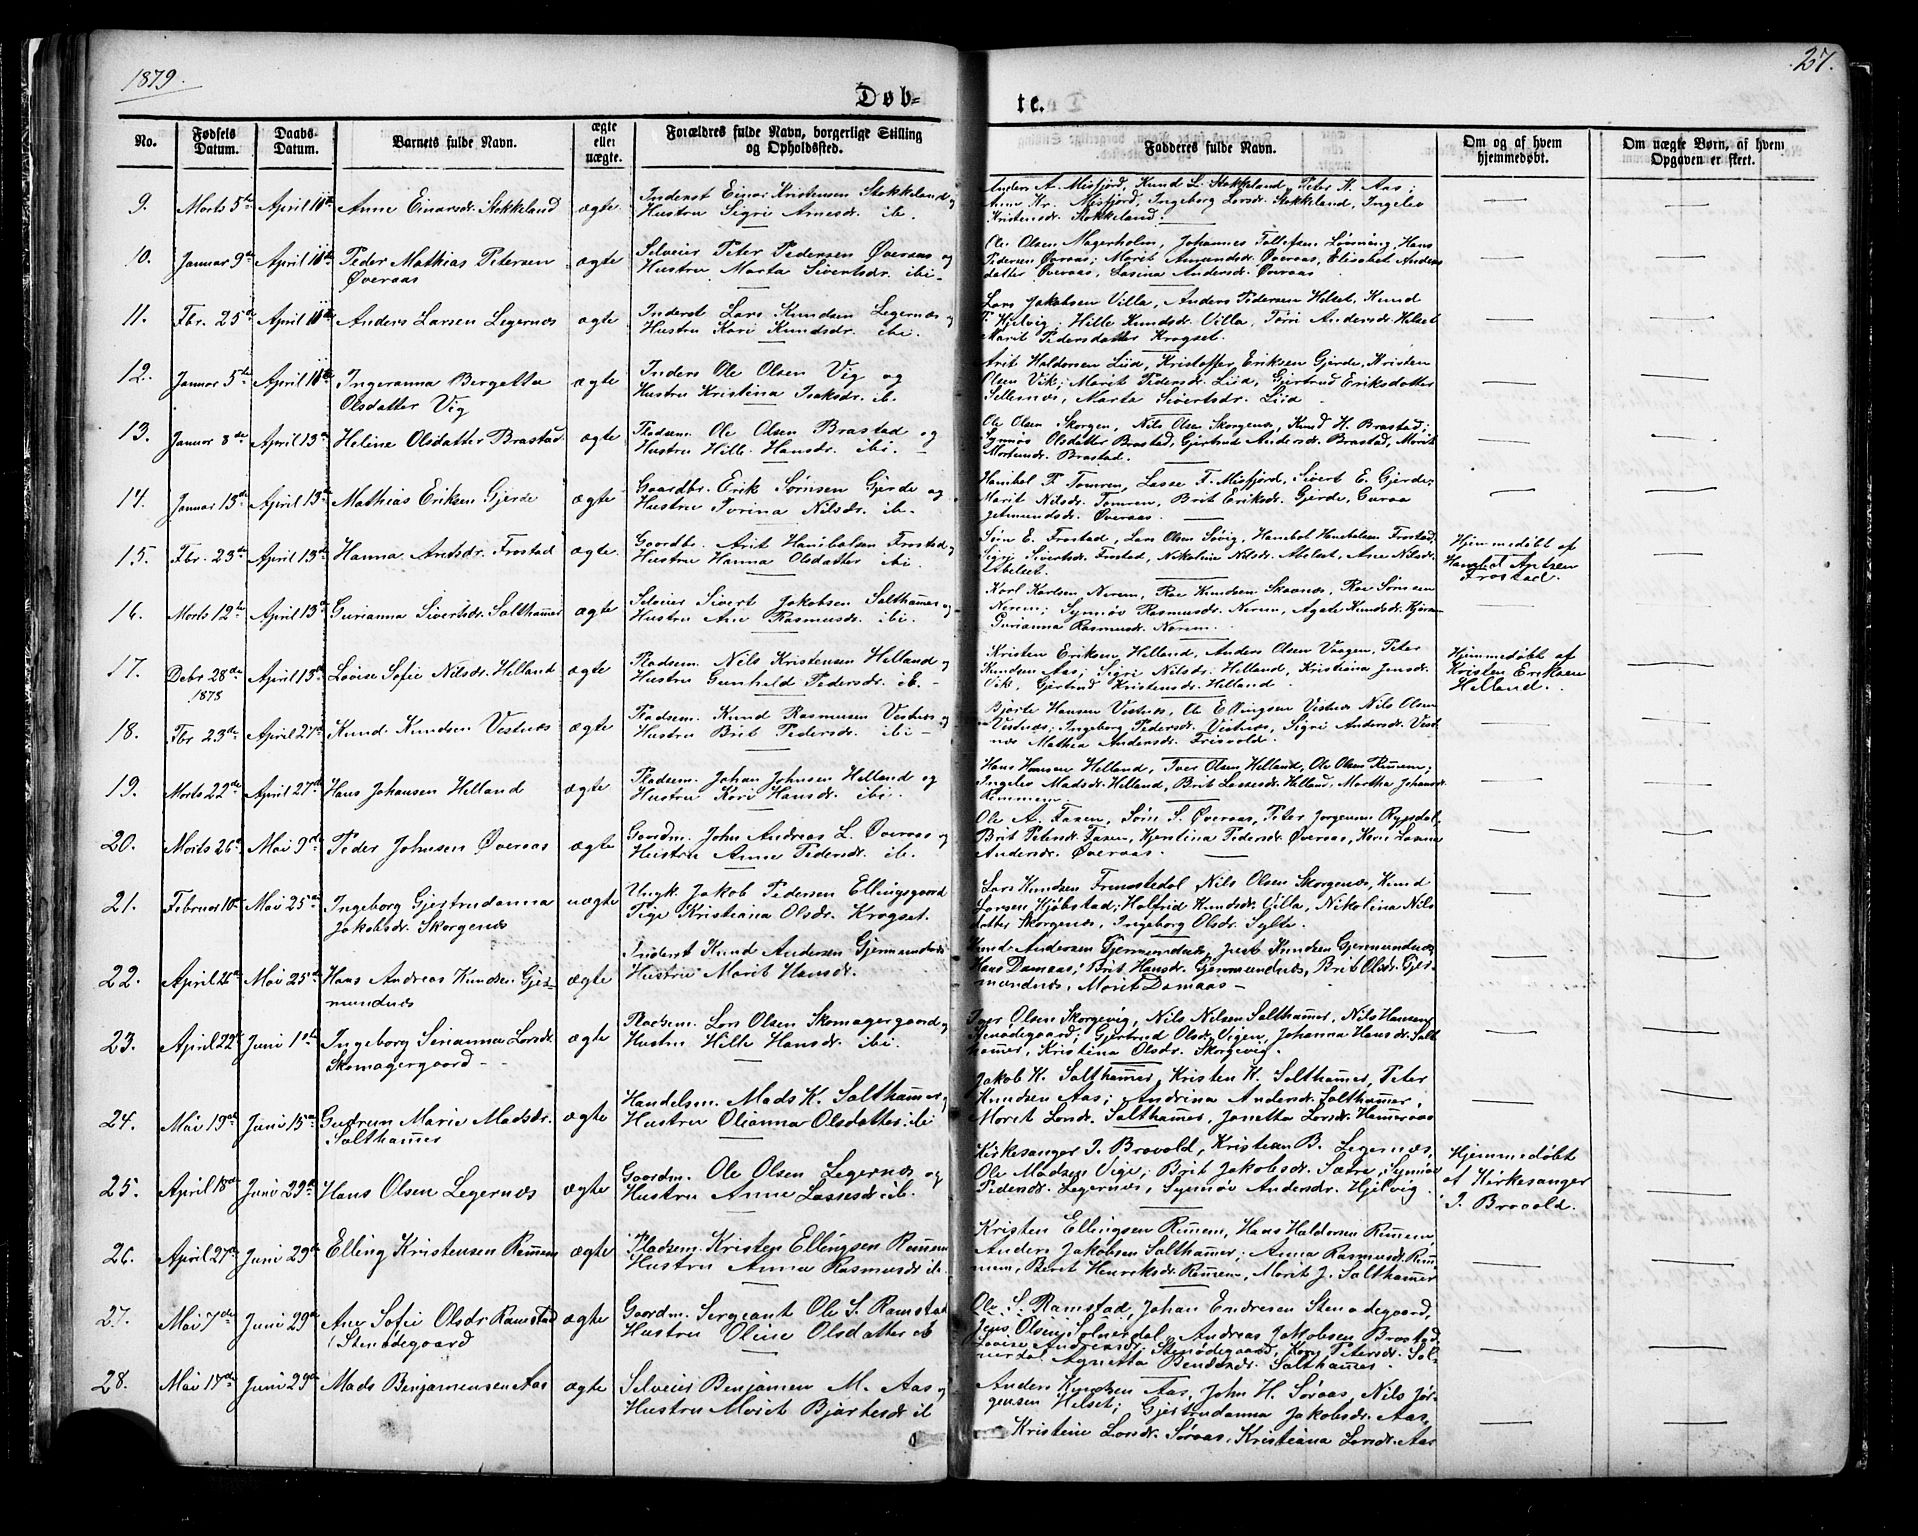 1879.
27.
Døb-
te.
No.
Fødsels Datum.
Daabs Datum.
Barnets fulde Navn.
ægte eller uægte.
Forældres fulde Navn, borgerlige Stilling og Opholdsted.
Fadderes fulde Navn.
Om og af hvem hjemmedøbt.
Om uægte Børn, af hvem Opgaven er skeet.
9. Marts 5te April 11te Anne Einarsdr. Stokkeland ægte Inderst Einar Kristensen Stokkeland og
Hustru Sigri Arnesdr. ib.
Anders A. Misfjord, Knud L. Stokkeland, Peter K. Aas;
Ane Kr. Misfjord, Ingeborg Larsdr. Stokkeland, Ingelev
Kristensdr. Stokkeland.
10. Januar 9de April 11te Peder Mathias Petersen
Øveraas
ægte Selveier Peter Pedersen Øveraas og
Hustru Marta Sivertsdr. ibi
Ole Olsen Magerholm, Johannes Tollefsen Løvsning, Hans
Pedersen Øveraas; Marit Amundsdr. Øveraas, Elisabet Anders
datter Øveraas, Lasina Andersdr. Øveraas
11. Fbr. 25de April 11te Anders Larsen Legernæs ægte Inderst Lars Knudsen Legernæs og
Hustru Kari Knudsdr. ibi.
Lars Jakobsen Villa, Anders Pedersen Helset, Knud
T. Hjelvig, Hille Knudsdr. Villa, Tørri Andersdr. Helset
Marit Pedersdatter Krogset.
12. Januar 5te April 11te Ingeranna Bergetta
Olsdatter Vig
ægte Inders Ole Olsen Vig og
Hustru Kristina Isaksdr. ib.
Arit Haldorsen Liid, Kristoffer Eriksen Gjerde, Kristen
Olsen Vik; Marit Pedersdr. Liid, Gjertrud Eriksdatter
Sellenæs, Marta Sivertsdr. Liid
13. Januar 3de April 13de Heline Olsdatter Brastad ægte Pladsem. Ole Olsen Brastad og
Hustru Hille Hansdr. ibi
Ole Olsen Skorgen, Nils Olsen Skorgenæs, Knud H. Brastad;
Synnøv Olsdatter Brastad, Gjertrude Andersdr. Brastad, Marit
Mortensdr. Brastad.
14. Januar 13de April 13de Mathias Eriksen Gjerde ægte Gaardbr. Erik Sørensen Gjerde og
Hustru Turina Nilsdr. ib.
Hanibal P. Tomren, Lasse F. Misfjord, Sivert E. Gjerde;
Marit Nilsdr. Tomren, Brit Eriksdr. Gjerde, Guroa
Jetmundsdr. Øveraas.
15. Fbr. 23de April 13de Hanna Aritsdr. Frostad ægte Gaardbr. Arit Hanibalsen Frostad og
Hustru Hanna Olsdatter ibi
Søren E. Frostad, Lars Olsen Søvig, Hanibal Hanibalsen Frostad,
Sigri Sivertsdr. Frostad, Nikoline Nilsdr. Abelset, Ane Nilsdr.
Abelset.
Hjemmedøbt af
Hanibal Aritsen
Frostad.
16. Marts 12te April 13de Gurianna Sivertsdr. Salthamer ægte Selveier Sivert Jakobsen Salthamer og
Hustru Ane Rasmusdr. ibi.
Karl Karlsen Nerem, Roe Knudsen Skavnæs, Roe Sørensen
Nerem; Synnøv Rasmusdr. Nerem, Agate Knudsdr.
Gurianna Rasmusdr. Nerem.
17. Debr. 28de
1878
April 13de Lovise Sofie Nilsdr. Helland ægte Pladsem. Nils Kristensen Helland og
Hustru Gunhild Pedersdr. ib.
Kristen Eriksen Helland, Anders Olsen Vaagen, Peter
Knudsen Aas; Sigri Nilsdr. Helland, Kristiana Jensdr.
Vik, Gjertrud Kristensdr. Helland
Hjemmedøbt af
Kristen Eriksen
Helland.
18. Fbr. 23de April 27de Knud Knudsen Vestnæs ægte Pladsem. Knud Rasmusen Vestnæs og
Hustru Brit Pedersdr. ibi
Bjarte Hansen Vestnæs, Ole Ellingsen Vestnæs Nils Olsen
Vestnæs; Ingeborg Pedersdr. Vestnæs, Sigri Andersdr. Vest
næs Mathea Andersdr. Frisvold.
19. Marts 22de April 27de Hans Johansen Helland ægte Pladsem. Johan Johnsen Helland og
Hustru Kari Hansdr. ibi.
Hans Hansen Helland, Iver Olsen Helland, Ole Olsen Remem;
Ingelev Madsdr. Helland, Brit Lassesdr. Helland, Martha Johansdr.
Remmem.
20. Marts 26de Mai 9de Peder Johnsen Øveraas ægte Gaardm. John Andreas L. Øveraas og
Hustru Anne Pedersdr. ib.
Ole A. Faxen, Søren S. Øveraas, Peter Jørgensen Rypdal,
Brit Petersdr. Faxen, Kjerstina Pedersdr. Øveraas, Karen Lasina
Andersdr. Øveraas.
21. Februar 10de Mai 25de Ingeborg Gjertrudanna
Jakobsdr. Skorgenæs
uægte Ungk. Jakob Pedersen Ellingsgaard
Pige Kristiana Olsdr. Krogset.
Lars Knudsen Fremstedal Nils Olsen Skorgenæs, Knud
Larsen Kjøbstad; Halfrid Knudsdr. Villa, Nikolina Nils
datter Skorgenæs, Ingeborg Olsdr. Sylte.
22. April 26de Mai 25de Hans Andreas Knudsen Gjer-
mundnæs
ægte Inderst Knud Andersen Gjermundnæs
Hustru Marit Hansdr.
Knud Andersen Gjermundnæs, Just Knudsen Gjermundnæs
Hans Damaas; Brit Hansdr. Gjermundnæs, Brit Olsdr. Gjer-
mundnæs, Marit Damaas
23. April 22de Juni 1ste Ingeborg Serianna Larsdr.
Skomagergaard
ægte Pladsem. Lars Olsen Skomagergaard og
Hustru Hille Hansdr. ibi.
Iver Olsen Skorgevig, Nils Nilsen Salthamer, Nils Hansen
Stenødegaard; Gjertrud Olsdr. Vigen, Johanna Hansdr. Salt
hamer, Kristina Olsdr. Skorgevig.
24. Mai 19de Juni 15de Gudrun Marie Madsdr.
Salthamer
ægte Handelsm. Mads K. Salthamer og
Hustru Olianna Olsdatter ibi
Jakob K. Salthamer, Kristen K. Salthamer, Peter
Knudsen Aas; Andrina Andersdr. Salthamer,
Marit Larsdr. Salthamer, Janetta Larsdr. Hameraas
25. April 18de Juni 29de Hans Olsen Legernæs ægte Gaardm. Ole Olsen Legernæs og
Hustru Anne Lassesdr. ib.
Kirkesanger I. Brovold, Kristian B. Legernæs,
Ole Madsen Vige; Brit Jakobsdr. Sætre, Synnøv
Pedersdr. Legernæs, Synnøv Andersdr. Hjelvig
Hjemmedøbt
af Kirkesanger
I. Brovold.
26. April 27de Juni 29de Elling Kristensen Remem ægte Pladsem. Kristen Ellingsen Remem
Hustru Anna Rasmusdr. ib.
Kristen Ellingsen Remem, Hans Haldorsen Remem,
Anders Jakobsen Salthamer; Anna Rasmusdr. Rem
mem, Beret Henriksdr. Remem, Marit J. Salthamer
27. Mai 7de Juni 29de Ane Sofie Olsdr. Ramstad
(Stenødegaard
ægte Gaardm. Sergeant Ole S. Ramstad
Hustru Oline Olsdatter ib
Ole S. Ramstad, Johan Endresen Stenødegaard,
Jens Olsen Solnerdal, Andreas Jakobsen Brastad
Lovise Andreasdr. Stenødegaard, Karen Petersdr. Sol-
nerdal Agnetta Bendixdr. Salthamer.
28. Mai 17de Juni 29de Mads Benjamensen Aas ægte Selveier Benjamen M. Aas og
Hustru Marit Bjartesdr. ib
Anders Knudsen Aas, John H. Søraas, Nils Jør-
gensen Helset; Gjertrudanna Jakobsdr. Aas,
Kristine Larsdr. Søraas, Kristiana Larsdr. Aas